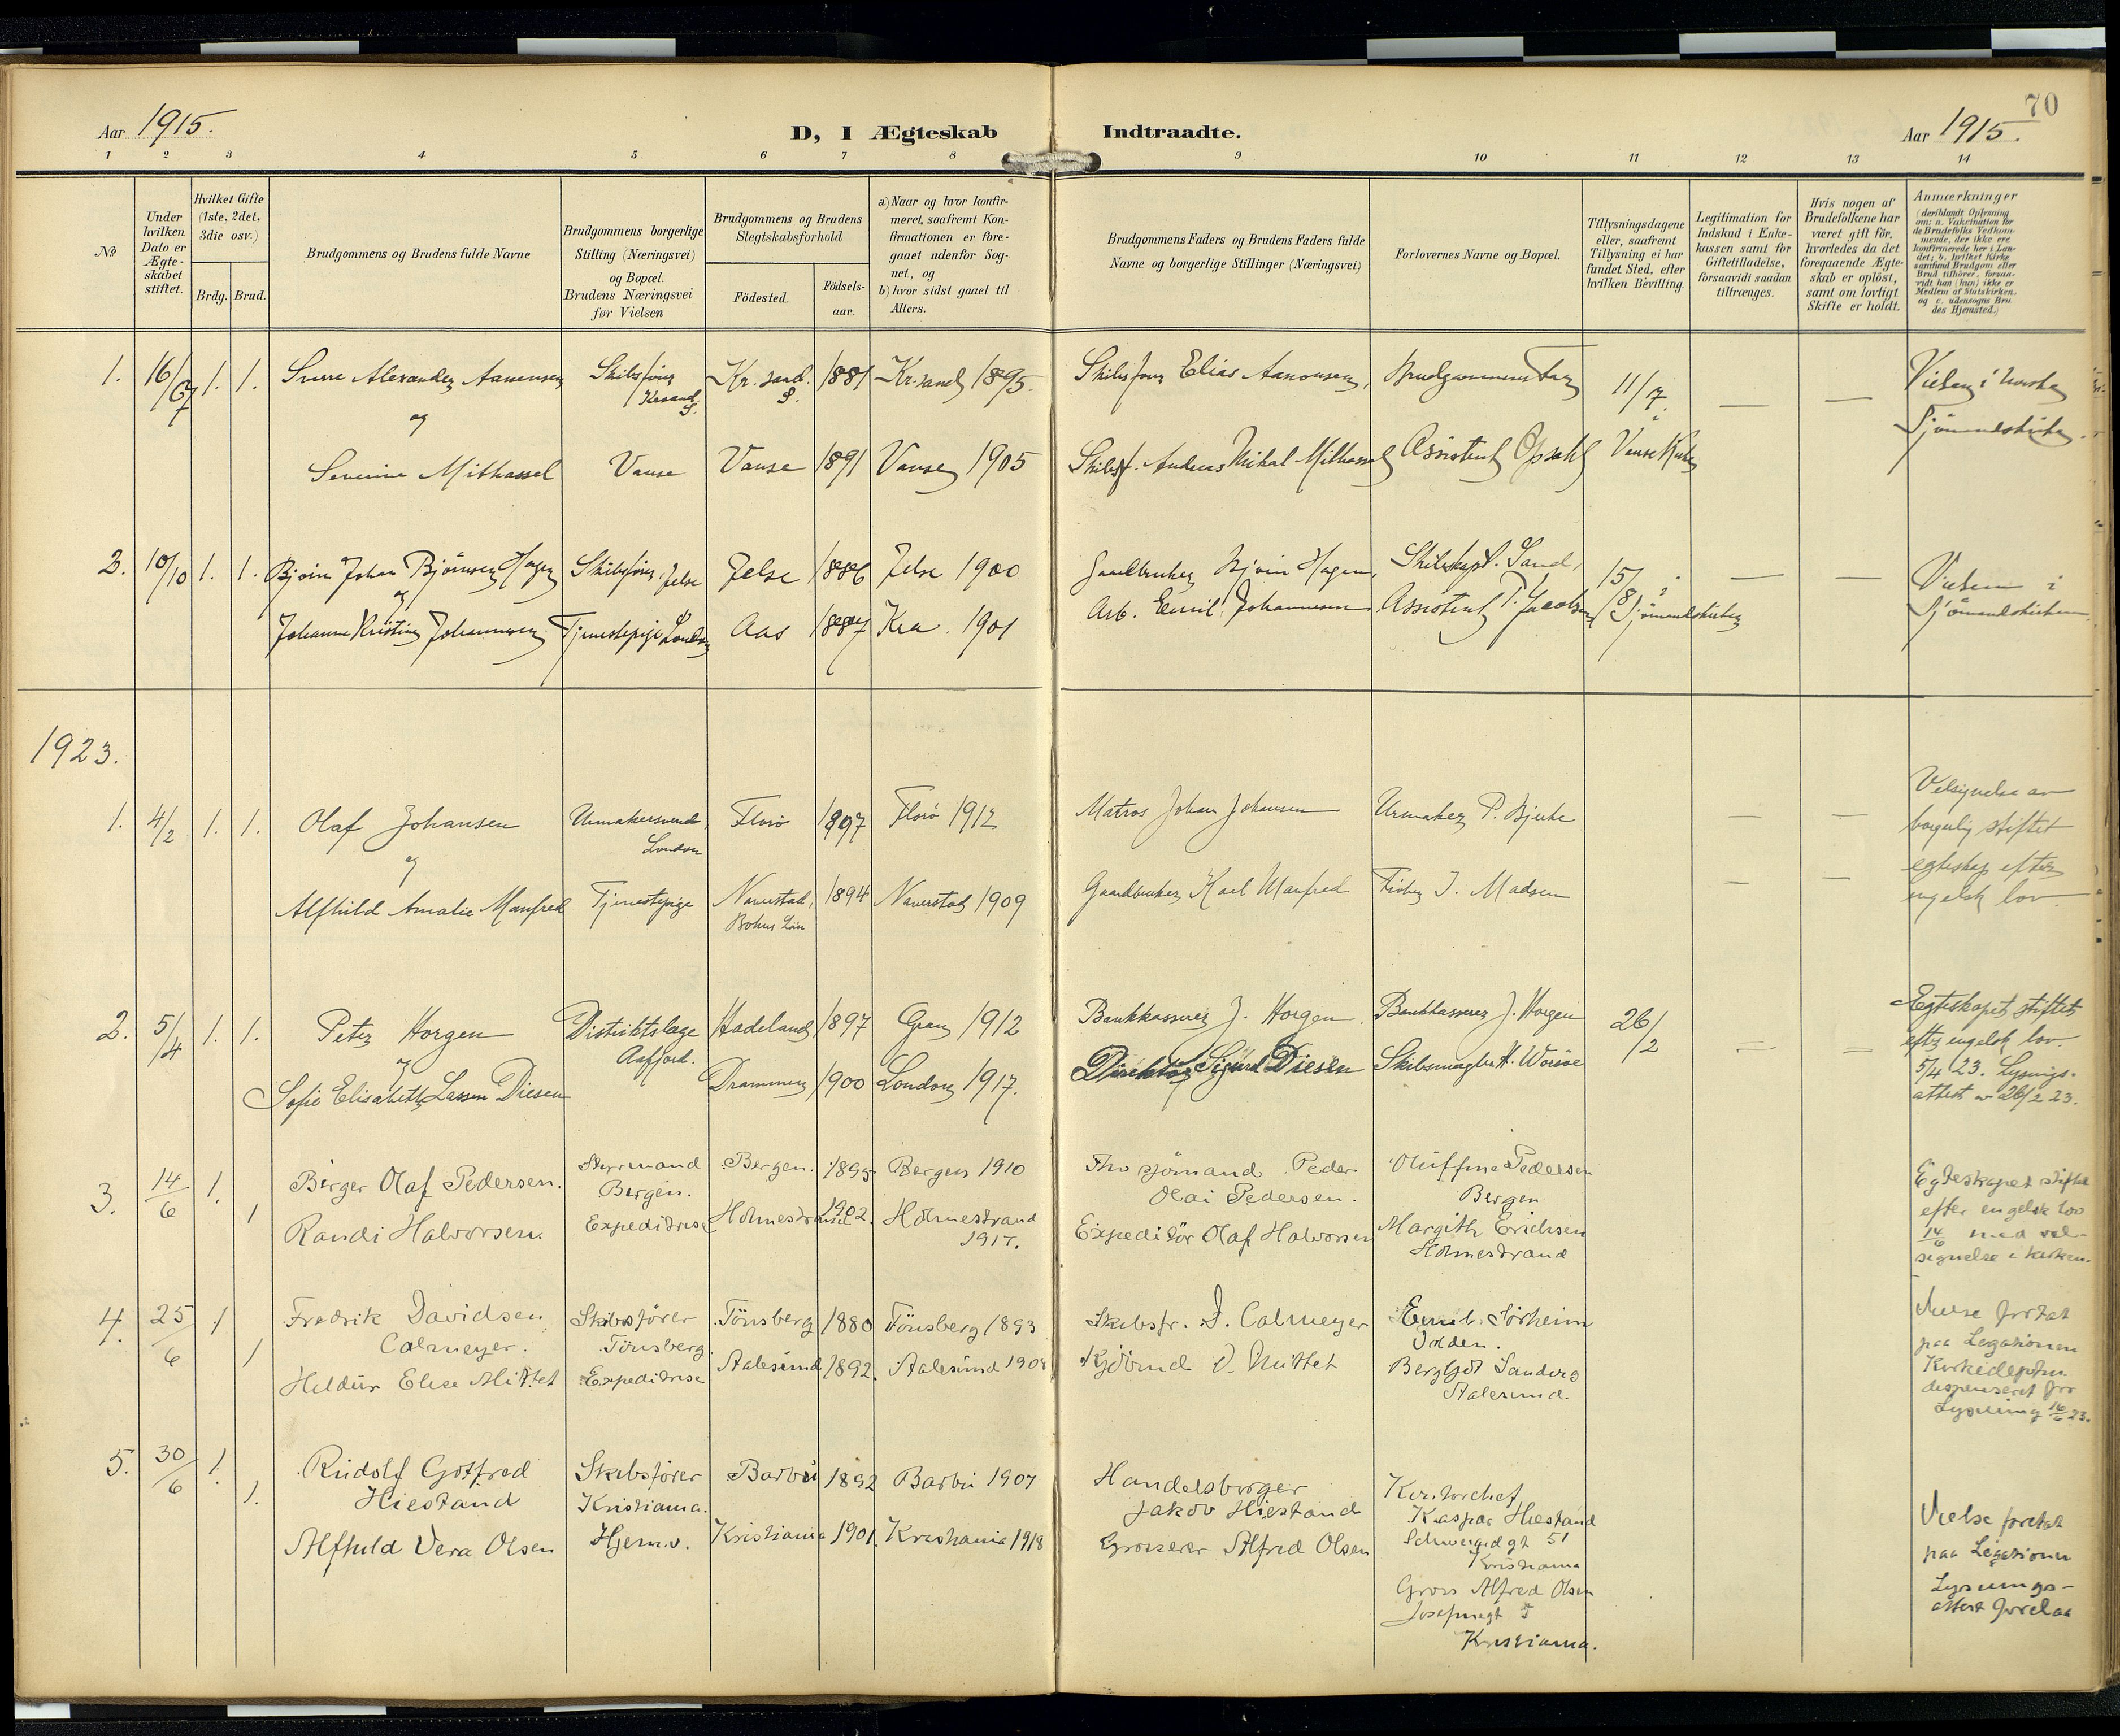 70
Aar 1915.
D, I Ægteskab Indtraadte.
Aar 1915.
1 2 3 4 5 6 7 8 9 10 11 12 13 14
No
Under hvilken Dato er Ægte-skabet stiftet.
Hvilket Gifte (1ste, 2det, 3die osv.)
Brdg. Brud.
Brudgommens og Brudens fulde Navne
Brudgommens borgerlige Stilling (Næringsvei) og Bopæl. Brudens Næringsvei før Vielsen
Brudgommens og Brudens Slegtskabsforhold
Födested.
Födsels-aar.
a) Naar og hvor konfir-meret, saafremt Kon-firmationen er fore-gaaet udenfor Sog-net, og
b) hvor sidst gaaet til Alters.
Brudgommens Faders og Brudens Faders fulde Navne og borgerlige Stillinger (Næringsvei)
Forlovernes Navne og Bopæl.
Tillysningsdagene eller, saafremt Tillysning ei har fundet Sted, efter hvilken Bevilling.
Legitimation for Indskud i Enke-kassen samt for Giftetilladelse, forsaavidt saadan tiltrænges.
Hvis nogen af Brudefolkene har været gift för, hvorledes da det foregaaende Ægte-skab er oplöst, samt om lovligt Skifte er holdt.
Anmærkninger
(deriblandt Oplysning om: a. Vakcination for de Brudefolks Vedkom-mende, der ikke ere konfirmerede her i Lan-det; b. hvilket Kirke-samfund Brudgom eller Brud tilhörer, forsaa-vidt han (hun) ikke er Medlem af Statskirken, og c. udensogns Bru-des Hjemsted.)
1. 16/7 1. 1. Sverre Alexander Aanensen Skibsfører Kr.sand S. Kr. sand. S. 1881 Kr.sand 1895. Skibsfører Elias Aanonsen, Brudgommens Far 11/7 i — — Vielsen i norske
og
Severine Mithassel Vanse Vanse 1891 Vanse 1905 Skibsf. Andreas Mikal Mithassel Assistent Opsahl Vanse Kirke Sjömandskirke.
2. 10/10 1. 1. Bjoin Johan Bjørnsen Hagen Skibsfører, Jelse Jelse 1886 Jelse 1900 Gaardbruker Bjoin Hagen, Skibskapt. Sand, 15/8 i — — Vielsen i
og
Johanne Kristine Johannesen Tjenestepige London Aas 1887 Kra. 1901 Arb. Emil Johannesen Assistent P. Jacobsen Sjömandskirken Sjömandskirken
1923.
1. 4/2 1. 1. Olaf Johansen Urmakersvend, London Florö 1897 Florö 1912 Matros Johan Johansen Urmaker P. Bjerke — — Velsignelse av
borgerlig stiftet
og
egteskap efter
Alfhild Amalie Manfred Tjenestepige Naverstad, Bohus Län 1894 Naverstad 1909 Gaardbruker Karl Manfred Fisker J. Madsen — — engelsk lov.
2. 5/4 1. 1. Peter Horgen Distriktslæge Aafjord. Hadeland 1897 Gran 1912 Bankkasserer J. Horgen Bankkasserer J. Horgen 26/2 — — Egteskapet stiftet
og
efter engelsk lov.
Sofie Elisabeth Lassen Diesen Drammen 1900 London 1917. Direktør Sigurd Diesen Skibsmægler H. Worsöe 5/4 23. Lysnings-
attest av 26/2 23.
3. 14/6 1. 1 Birger Olaf Pedersen. Styrmand Bergen. Bergen. 1895 Bergen 1910 Fhv sjömand Peder Olai Pedersen. Oluffine Pedersen Bergen Egteskapet stiftet
Randi Halvorsen. Expeditrise Holmestrand 1902. Holmestrand 1917. Expeditör Olaf Halvorsen Margith Erichsen Holmestrand efter engelsk lov
14/6 med vel-
signelse i kirken.
4. 25/6 1 1 Fredrik Davidsen Calmeyer. Skibsförer Tönsberg. Tönsberg 1880 Tönsberg 1893 Skibsfr. D. Calmeyer Emil Sörheim
Hildur Elise Mittet Expeditrise Aalesund 1892. Aalesund 1908 Kjöbmd. Mittet Sandvig Aalesund. Vielse fortat
paa Legationen
Kirkedeptm.
dispenseret for
Lysning 16/6 23.
5. 30/6 1. 1. Rudolf Gotfred Hiestand Skibsförer Kristiania. Barbu 1892 Barbu 1907 Handelsborger Jakov Hiestand Kontorchef
Kaspar Hiestand
Schweigdgt 51
Kristiania
Alfhild Vera Olsen Hjemv. Kristiania 1901. Kristiania 1918 Grosserer Alfred Olsen Gross Alfred Olsen
Josefinegt 5
Kristiania.
Vielse foretat
paa Legationen
Lysnings-
attest forelaa